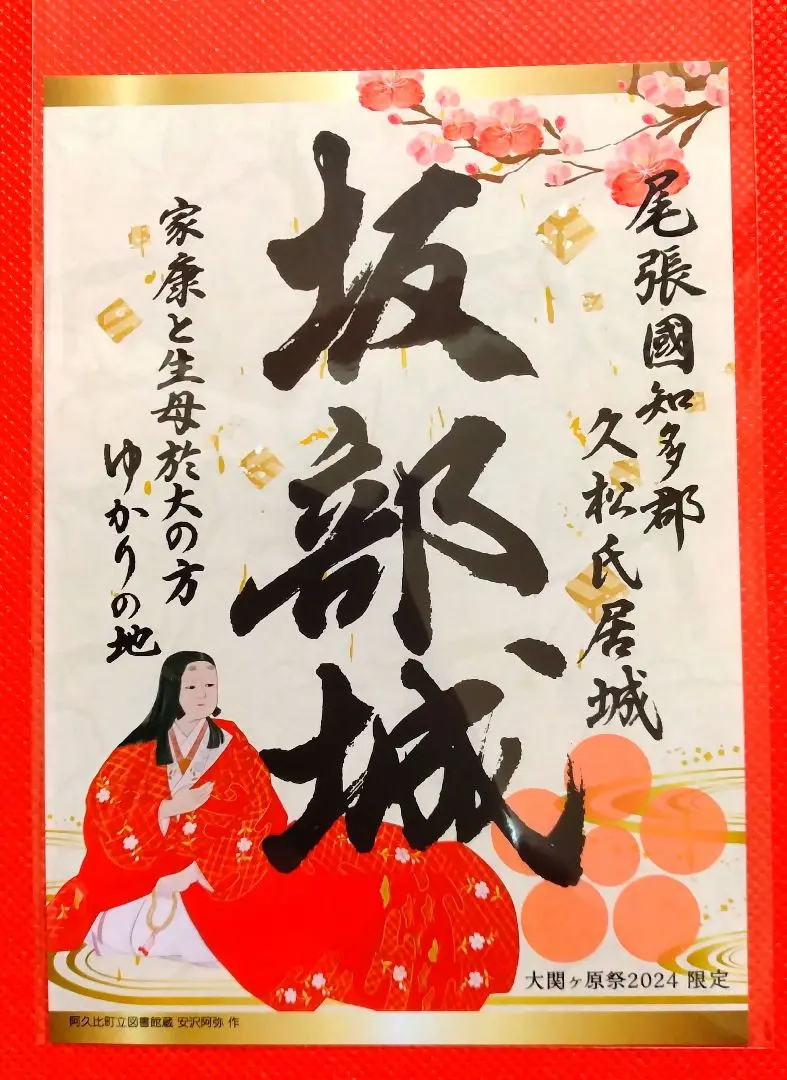 尾張國知多郡
久松氏居城
坂部城
家康と生母於大の方
ゆかりの地
大関ヶ原祭2024 限定
阿久比町立図書館蔵 安沢阿弥 作